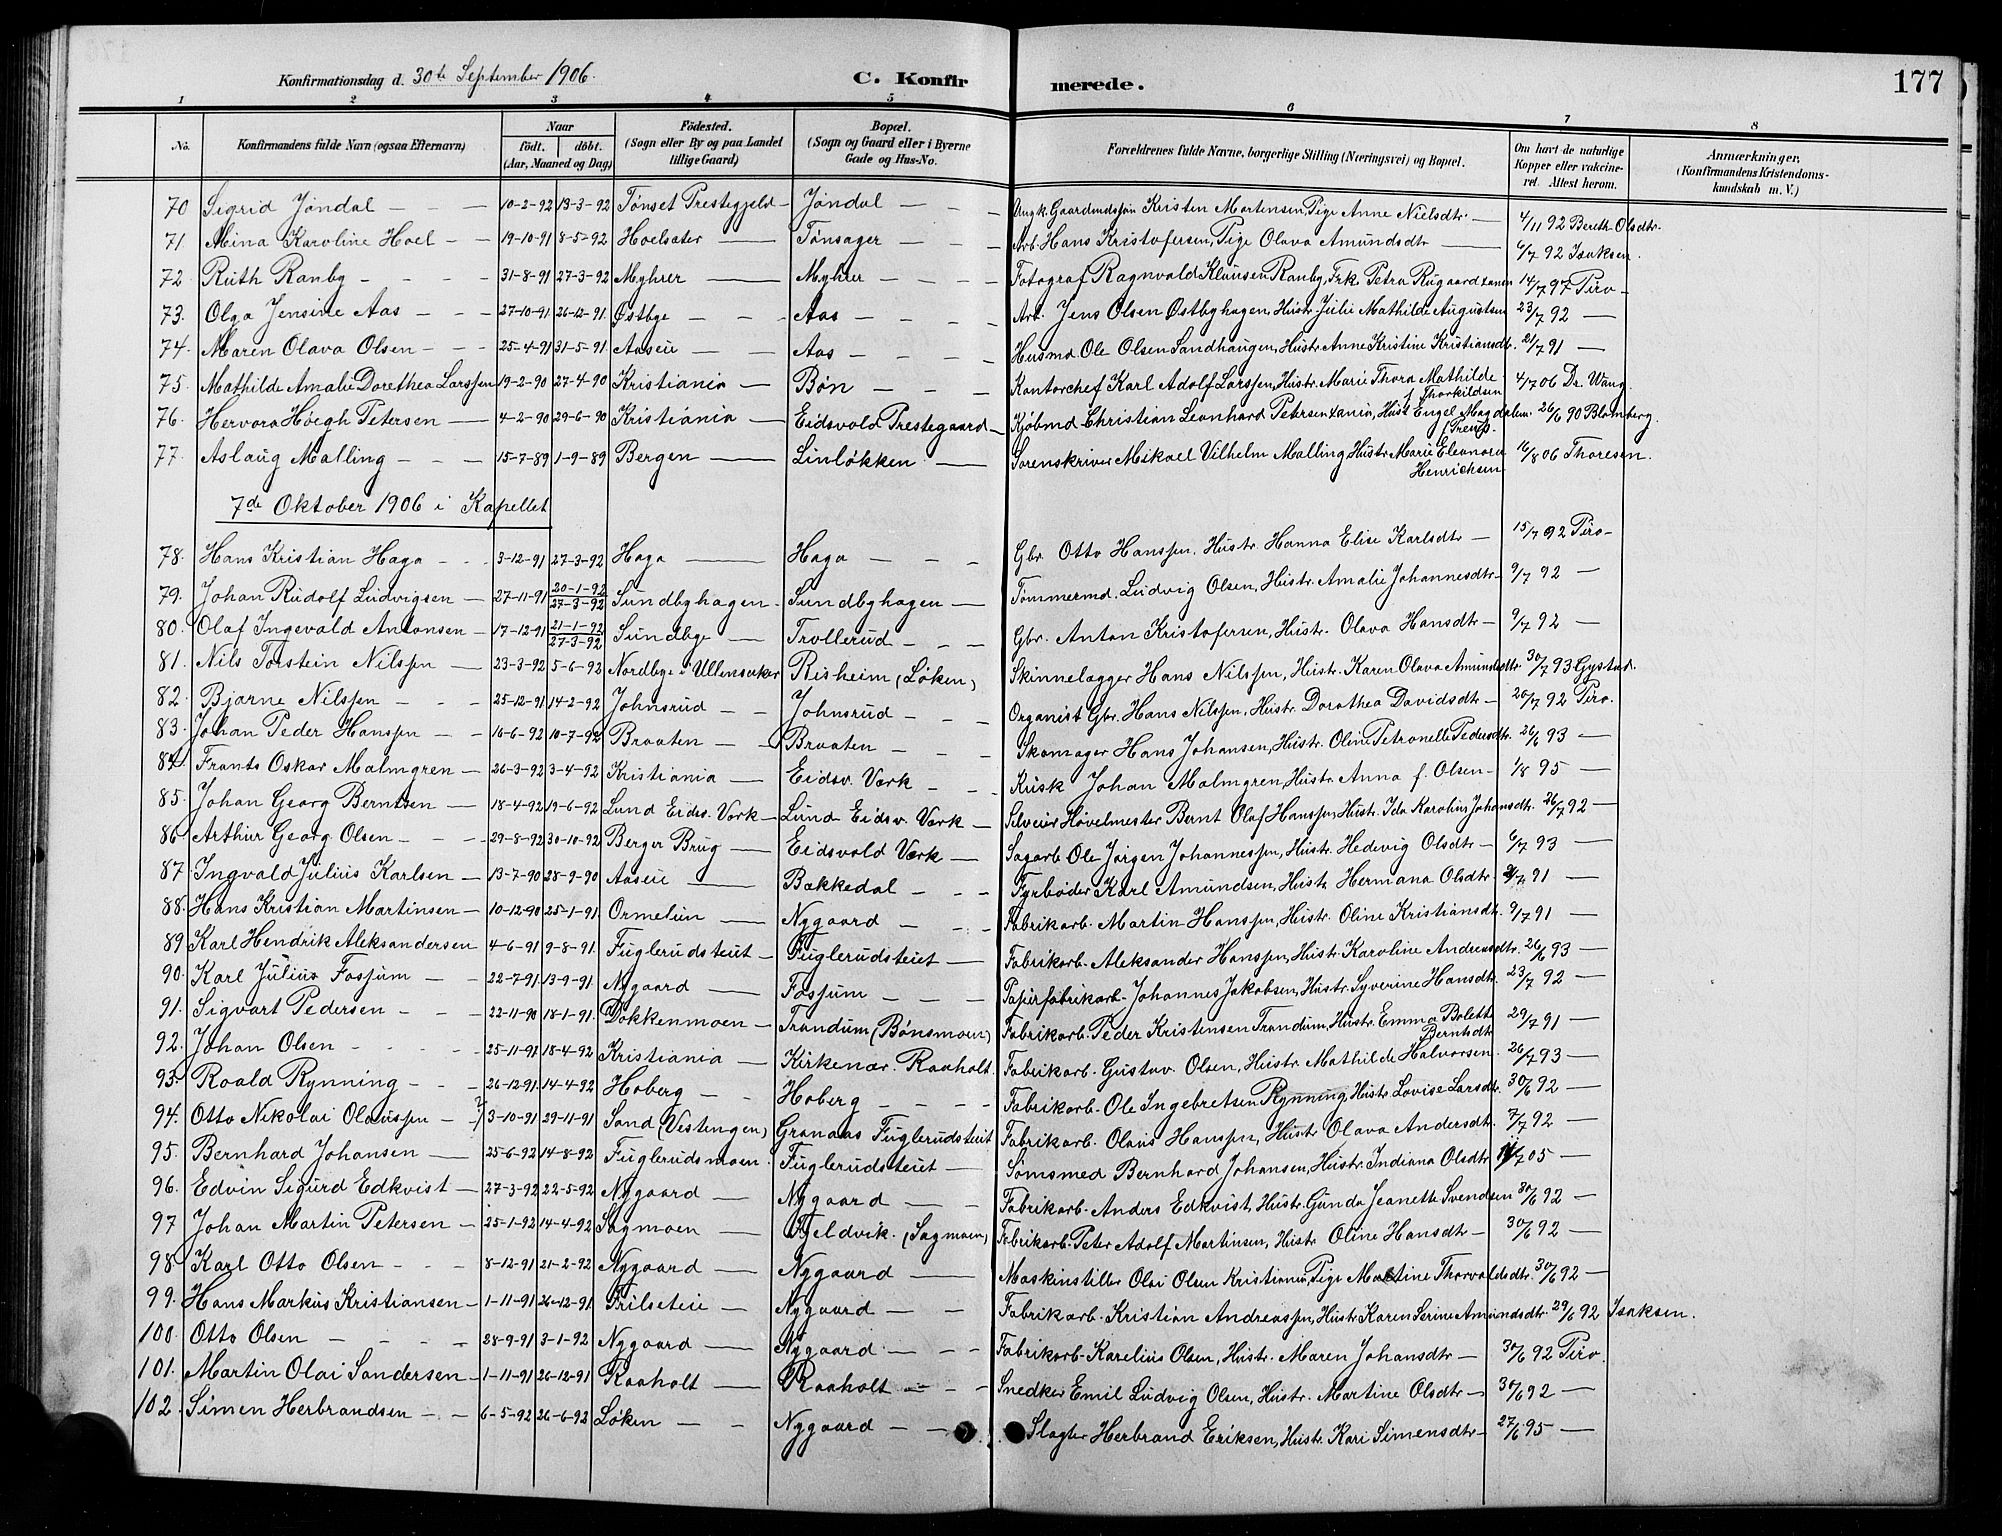 Konfirmationsdag d. 30te September 1906. C. Konfir merede. 177
1 2 3 4 5 6 7 8
No. Konfirmandens fulde Navn (ogsaa Efternavn) Naar födt. döbt. (Aar, Maaned og Dag) Födested. (Sogn eller By og paa Landet tillige Gaard) Bopæl. (Sogn og Gaard eller i Byerne Gade og Hus-No. Forældrenes fulde Navne, borgerlige Stilling (Næringsvei) og Bopæl. Om havt de naturlige Kopper eller vakcineret. Attest herom. Anmærkninger, (Konfirmandens Kristendomskundskab m. V.)
70 Sigrid Jøndal 10-2-92 13-3-92 Tønset Prestegjeld Jøndal Ungk. Gaardmdssøn Kristen Mortensen, Pige Anne Nielsdtr. 4/11 92 Bereth Olsdtr.
71. Mina Karoline Hoel 19-10-91 8-5-92 Hoelsæter Tønsager Arb. Hans Kristofersen, Pige Olava Amundsdtr 6/7 92 Isaksen.
72 Ruth Ranby 31-8-91 27-3-92 Myhrer Myhrer Fotograf Ragnvald Klausen Ranby, Frk. Petra Rugaard 14/7 97 Piro
73. Olga Jensine Aas 27-10-91 26-12-91 Østbye Aas Arb. Jens Olsen Østbyhagen, Hustr. Julie Mathilde Augustsen 23/7 92
74. Maren Olava Olsen 25-4-91 31-5-91 Aaseie Aas Husmd. Ole Olsen Sandhaugen, Hustr. Anne Kristine Kristiansdtr. 21/7 91
75. Mathilde Amalie Dorethea Larssen 19-2-90 27-4-90 Kristiania Bøn Kontorchef Karl Adolf Larssen, Hustr. Marie Thora Mathilde f. Thorkildsen 4/7 06 Dr. Wang.
76. Hervora Høegh Petersen 4-2-90 29-6-90 Kristiania Eidsvold Prestegaard Kjøbmd. Christian Leonhard Petersen, Hust. Engel Magdalene 26/6 90 Blomberg.
77. Aslaug Malling 15-7-89 1-9-89 Bergen Linløkken Sorenskriver Mikael Vilhelm Malling, Hustr. Marie Eleonora Henrichsen 16/8 06 Thoresen.
7de Oktober 1906 i Kapellet
78. Hans Kristian Haga 3-12-91 27-3-92 Haga Haga Gbr. Otto Hanssen. Hustr. Hanna Elise Karlsdtr 15/7 92 Piro
79. Johan Rudolf Ludvigsen 27-11-91 20-1-92 27-3-92 Sundbyhagen Sundbyhagen Tømmermd. Ludvig Olsen, Hustr. Amalie Johannesdtr 9/7 92
80. Olaf Ingevald Antonsen 17-12-91 21-1-92 27-3-92 Sundbye Trollerud Gbr. Anton Kristofersen, Hustr. Olava Hansdtr 9/7 92
81. Nils Torstein Nilssen 23-3-92 5-6-92 Nordbye i Ullensaker Risheim (Løken) Skindlægger Hans Nilssen, Hustr. Karen Olava Amundsdtr. 30/7 93 Gystad.
82. Bjarne Nilssen 25-12-91 14-2-92 Johnsrud Johnsrud Organist Gbr. Hans Nilssen, Hustr. Dorothea Davidsdtr 20/7 92 Piro.
83. Johan Peder Hanssen 16-6-92 10-7-92 Braaten Braaten Skomager Hans Johansen, Hustr. Oline Petronelle Pedersdtr. 26/6 93
84. Frants Oskar Malmgren 26-3-92 3-4-92 Kristiania Eidsv. Værk Kusk Johan Malmgren, Hustr. Anna f. Olsen 1/8 95
85. Johan Georg Berntsen 18-4-92 19-6-92 Lund Eidsv. Værk Lund Eidsv. Værk Høvelmester Bernt Olaf Hanssen, Hustr. Ida Karoline Johansdtr. 26/7 92
86. Arthur Georg Olsen 29-8-92 30-10-92 Berger Brug Eidsvold Værk Sagarb. Ole Jørgen Johannessen, Hustr. Hedevig Olsdtr 6/7 93
87. Ingvald Julius Karlsen 13-7-90 28-9-90 Aaseie Bækkedal Fyrbøder Karl Amundsen, Hustr. Hermana Olsdtr. 91
88. Hans Kristian Martinsen 10-12-90 25-1-91 Ormelun Nygaard Fabrikarb. Martin Hanssen, Hustr. Oline Kristiansdtr. 9/7 91
89 Karl Hendrik Aleksandersen 4-6-91 9-8-91. Fuglerudsteiet Fuglerudsteiet Fabrikarb. Aleksander Hanssen, Hustr. Karoline Andreasdtr. 26/6 93
90. Karl Julius Fossum 22-7-91 13-9-91 Nygaard Fossum Papirfabrikarb. Johannes Jakobsen, Hustr. Syverine Hansdtr. 23/7 92
91. Sigvart Pedersen 22-11-90 18-1-91. Dokkenmoen Trandum (Bønsmoen) Fabrikarb. Peder Kristensen Trandum, Hustr. Emma Bolette Berntsdtr 29/7 91
92. Johan Olsen 25-11-91 18-4-92 Kristiania Kirkenær. Raaholt. Fabrikarb. Gustav. Olsen, Hustr. Mathilde Halvorsen. 26/7 93
93. Roald Rynning 26-12-91 14-4-92 Hoberg Hoberg Fabrikarb. Ole Ingebretsen Rynning, Hustr. Lovise Larsdtr. 30/6 92
94. Otto Nikolai Olaussen 3-10-91 29-11-91 Sand (Vestengen) Granaas Fuglerudsteiet Fabrikarb. Olaus Hanssen, Hustr. Olava Andersdtr. 7/7 92
95. Bernhard Johansen 25-6-92 14-8-92 Fuglerudsmoen Fuglerudsteiet Somsmed Bernhard Johansen, Hustr. Indiana Olsdtr. 05
96. Edvin Sigurd Edkvist 27-3-92 22-5-92 Nygaard Nygaard Fabrikarb. Anders Edkvist, Hustr. Gunda Jeanette Svendsen 30/6 92
97 Johan Martin Petersen 25-1-92 14-4-92 Sagmoen Fjeldvik. (Sagmoen) Fabrikarb. Peter Adolf Martinsen, Hustr. Oline Hansdtr 30/6 92
98. Karl Otto Olsen 8-12-91 21-2-92 Nygaard Nygaard Maskinstiller Olai Olsen Kristiania, Pige Martine Thorvaldsdtr. 30/6 92
99. Hans Markus Kristiansen 1-11-91 26-12-91 Frilseteie Nygaard Fabrikarb. Kristian Andreassen, Hustr. Karen Serine Amundsdtr. 29/6 92 Isaksen.
100. Otto Olsen 28-9-91 3-1-92 Nygaard Nygaard Fabrikarb. Karelius Olsen, Hustr. Maren Johansdtr 30/6 92 Piro.
101. Martin Olai Sandersen 1-11-91 26-12-91 Raaholt Raaholt Snedker Emil Ludvig Olsen, Hustr. Martine Olsdtr 30/6 92
102. Simen Herbrandsen 6-5-92 26-6-92 Løken Nygaard Slagter Herbrand Eriksen, Hustr. Kari Simensdtr 27/6 95